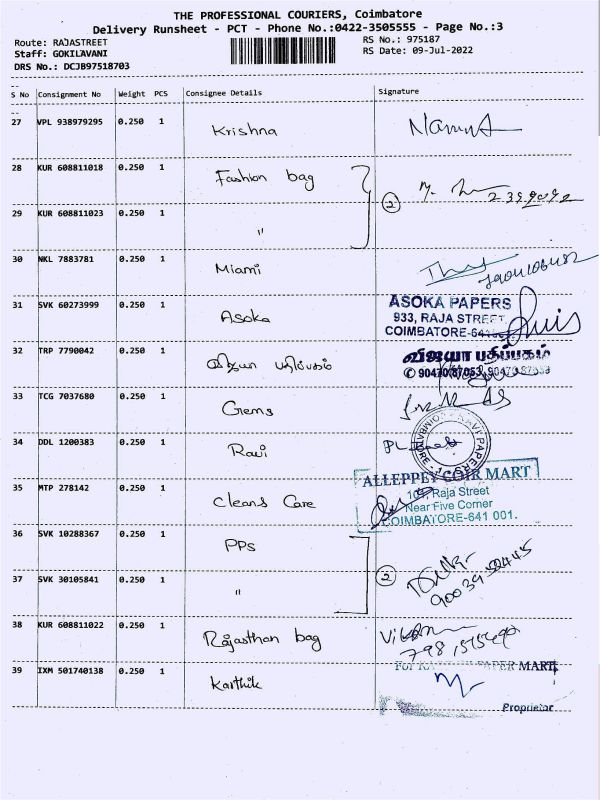 THE PROFESSIONAL COURIERS, Coimbatore
Delivery Runsheet - PCT - Phone No.:0422-3505555 - Page No.:3
Route: RAJASTREET
Staff: GOKILAVANI
DRS No.: DCJB97518703
RS No.: 975187
RS Date: 09-Jul-2022
S No Consignment No Weight PCS Consignee Details Signature
27 VPL 938979295 0.250 1 Krishna
28 KUR 608811018 0.250 1 Fashion bag
29 KUR 608811023 0.250 1 " 2
30 NKL 7883781 0.250 1 Miami
31 SVK 60273999 0.250 1 Asoka
ASOKA PAPERS
933, RAJA STREET
COIMBATORE-641
32 TRP 7790042 0.250 1 விஜயா பதிப்பகம்
விஜயா பதிப்பகம்
33 TCG 7037680 0.250 1 Gems
34 DDL 1200383 0.250 1 Ravi
35 MTP 278142 0.250 1 Cleans Care
ALLEPPEY COIR MART
Raja Street
Near Five Corner
COIMBATORE-641 001.
36 SVK 10288367 0.250 1 PPS
37 SVK 30105841 0.250 1 " 2
38 KUR 608811022 0.250 1 Rajasthan bag
39 IXM 501740138 0.250 1 Karthik
PAPER MART
Proprietor